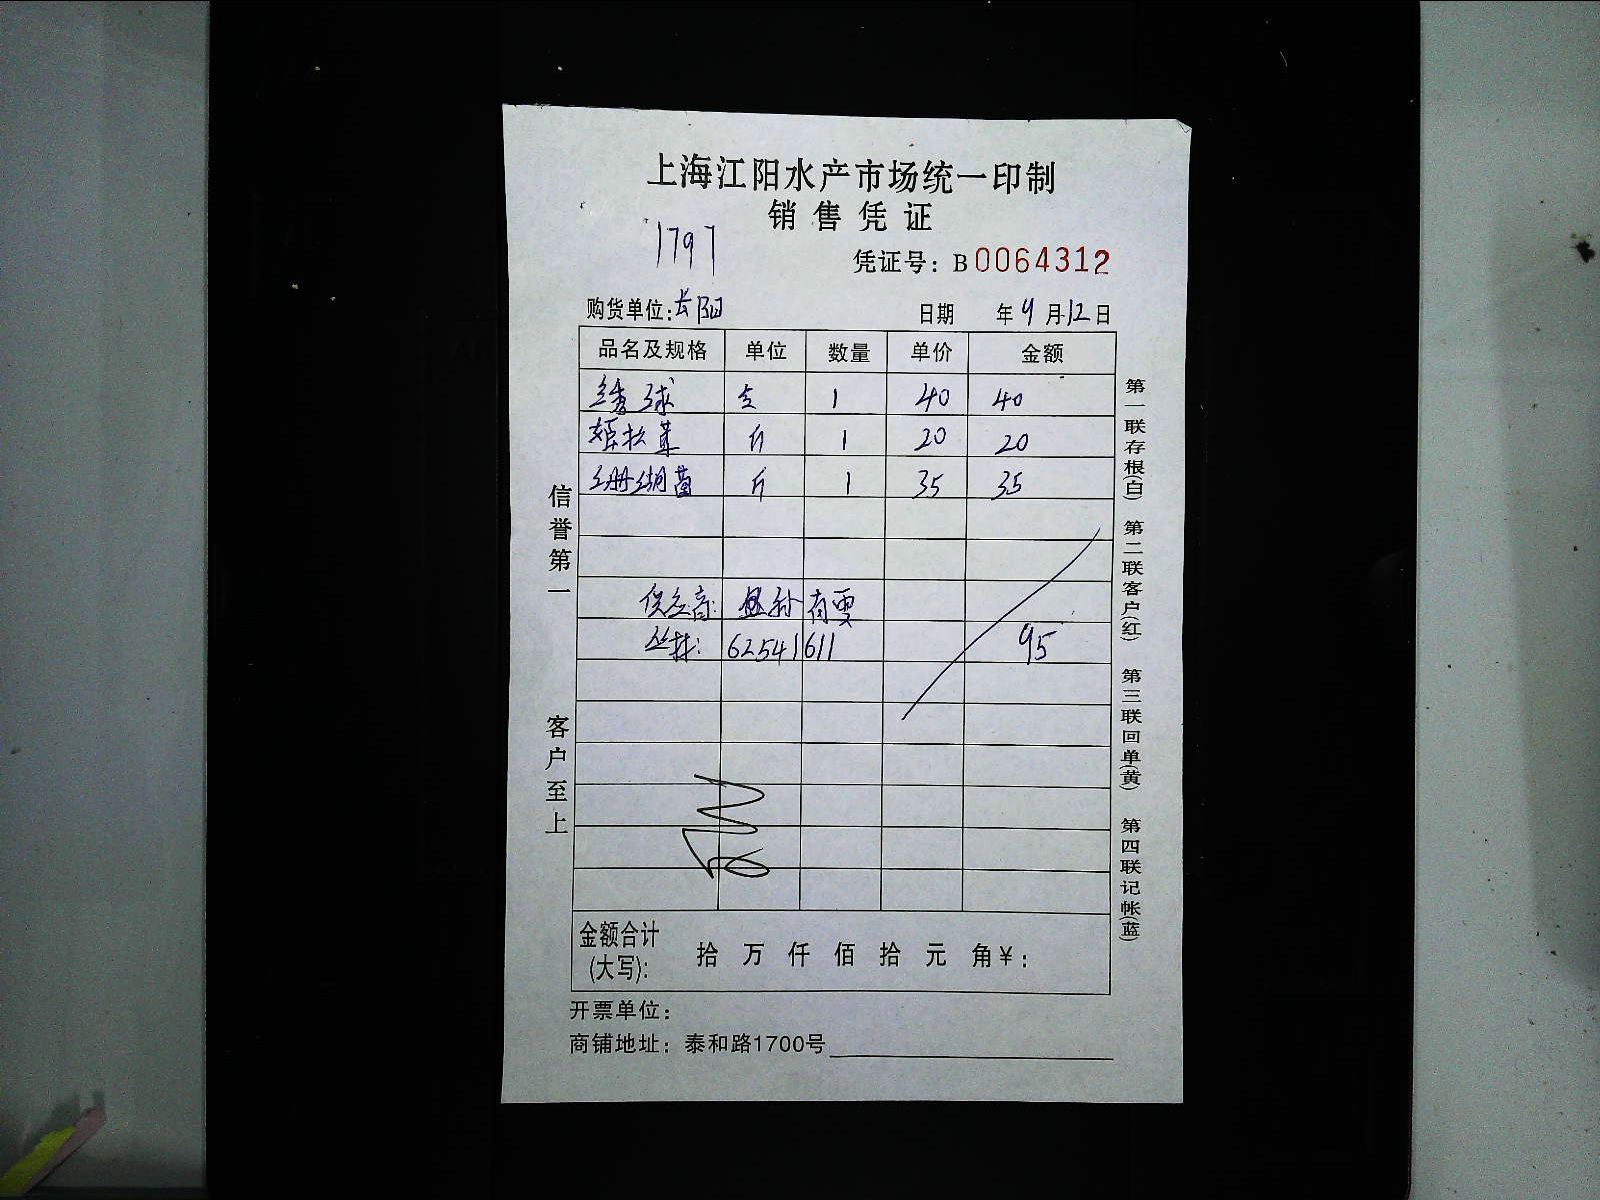 上海江阳水产市场统一印制
销售凭证
1797
凭证号：B0064312
购货单位：长阳 日期 年 9月12日
品名及规格 单位 数量 单价 金额
绣球 1 40 40
姬松茸 斤 1 20 20
珊瑚菌 斤 1 35 35
供应商：
95
62541611
信誉第一
客户至上
第一联存根(白) 第二联客户(红) 第三联回单(黄) 第四联记帐(蓝)
金额合计(大写)： 拾 万 仟 佰 拾 元 角 ¥：
开票单位：
商铺地址：泰和路1700号